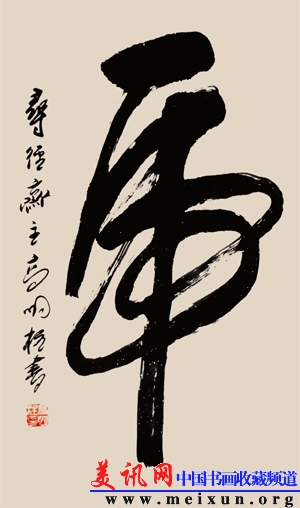 虎
尋 齋主高明 書
美讯网 中国书画收藏频道
www.meixun.org